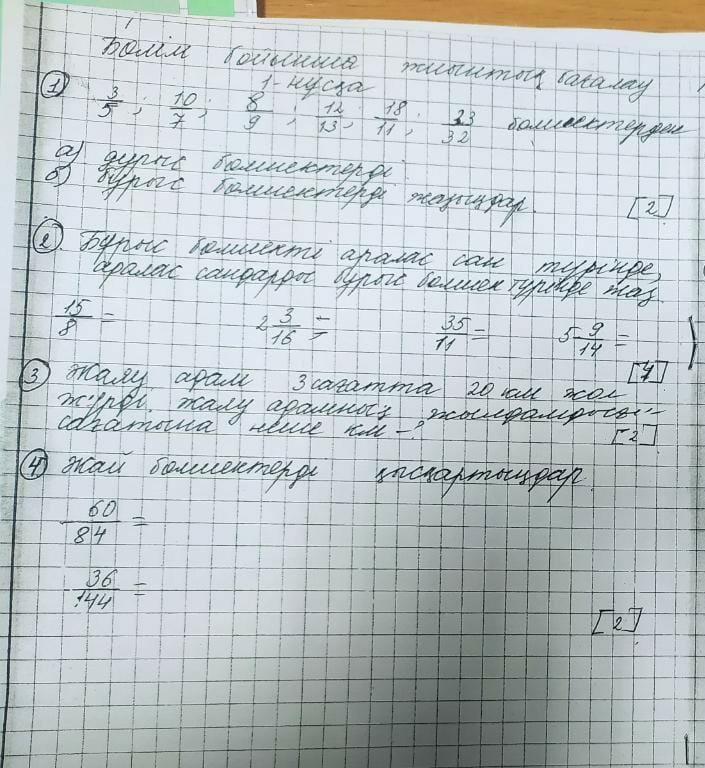 Бөлім бойынша жиынтық бағалау
1-нұсқа
① 3/5 ; 10/7 ; 8/9 ; 12/13 ; 18/11 ; 33/32 бөлшектерден
а) дұрыс бөлшектерді
б) бұрыс бөлшектерді жазыңдар. [2]
② Бұрыс бөлшекті аралас сан түрінде,
аралас сандарды бұрыс бөлшек түрінде жаз
15/8 = 2 3/16 = 35/11 = 5 9/14 =
[4]
③ Жаяу адам 3 сағатта 20 км жол
жүрді. Жаяу адамның жылдамдығы
сағатына неше км – ? [2]
④ Жай бөлшектерді қысқартыңдар
60/84 =
36/144 =
[2]